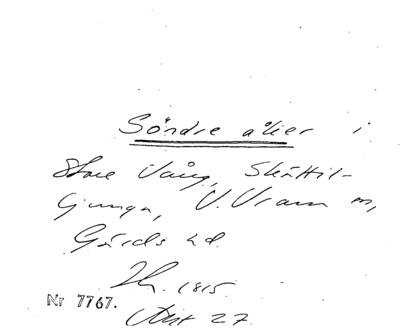 Söndre åker i
Store Vång, Skättil-
ljunga, V. Vram m,
Gärds hd.
Th. 1815.
Nr 7767.
Akt 27.